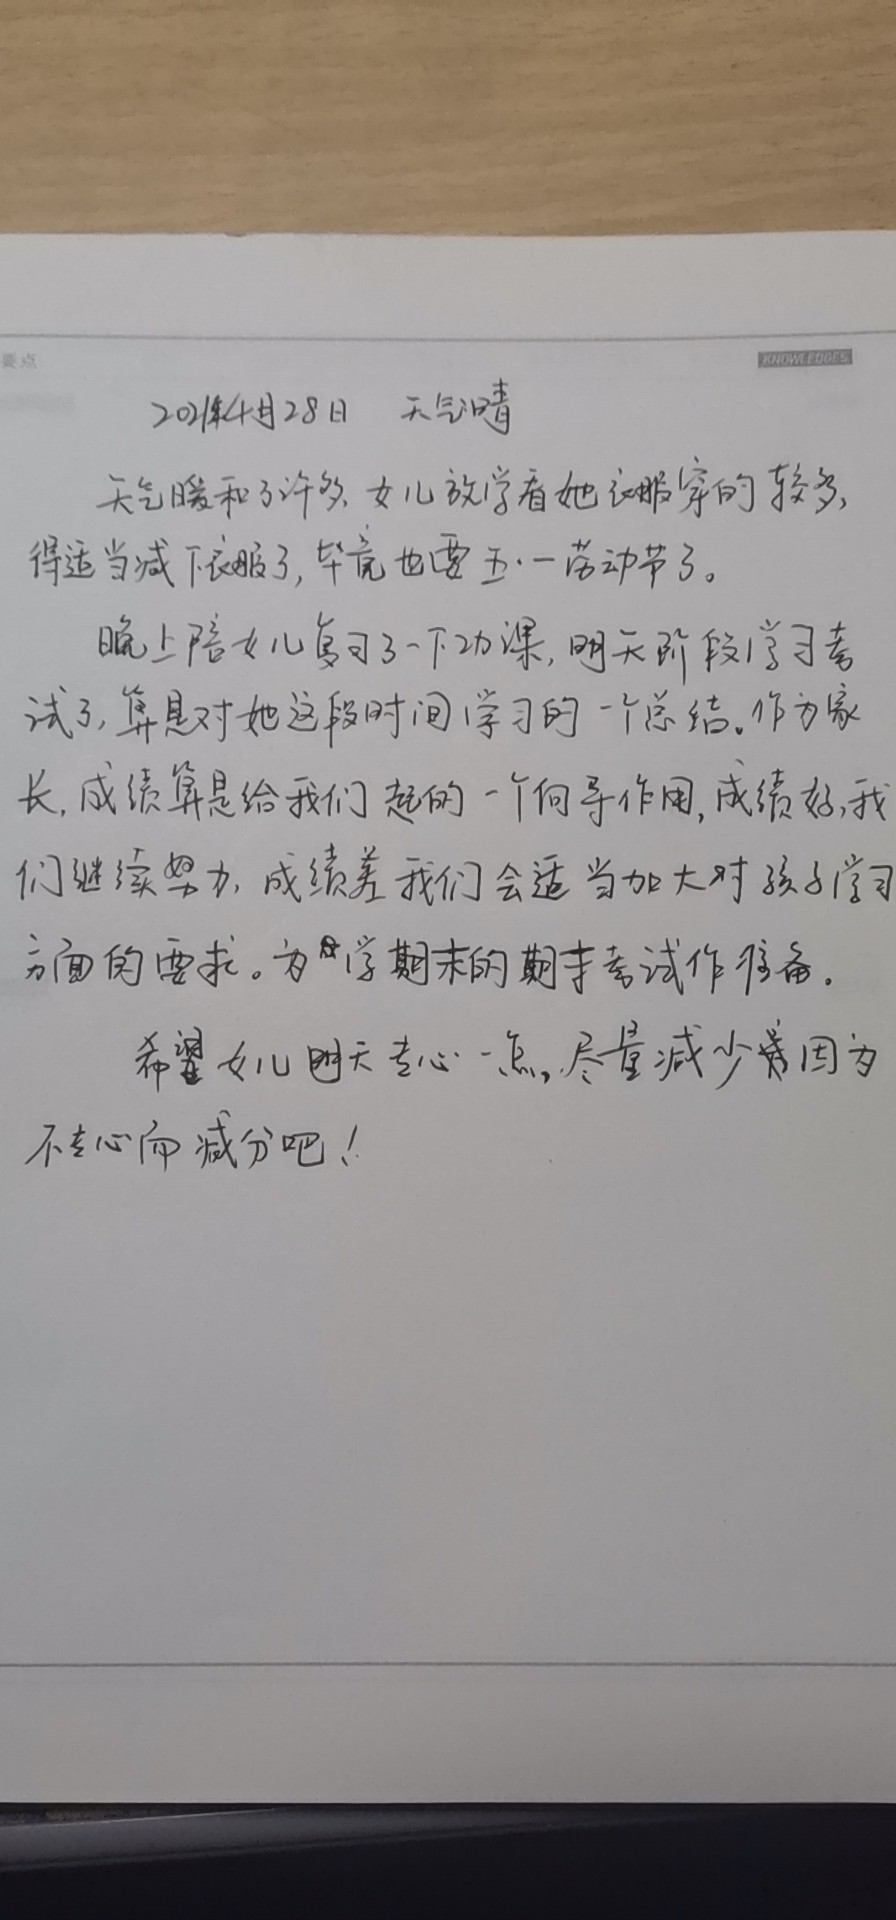 要点
KNOWLEDGES
2021年4月28日 天气晴
天气暖和了许多,女儿放学看她衣服穿的较多,
得适当减下衣服了,毕竟也要五·一劳动节了。
晚上陪女儿复习了一下功课,明天阶段学习考
试了,算是对她这段时间学习的一个总结。作为家
长,成绩算是给我们起的一个向导作用,成绩好,我
们继续努力,成绩差我们会适当加大对孩子学习
方面的要求。为学期末的期末考试作准备.
希望女儿明天专心一点,尽量减少因为
不专心而减分吧!